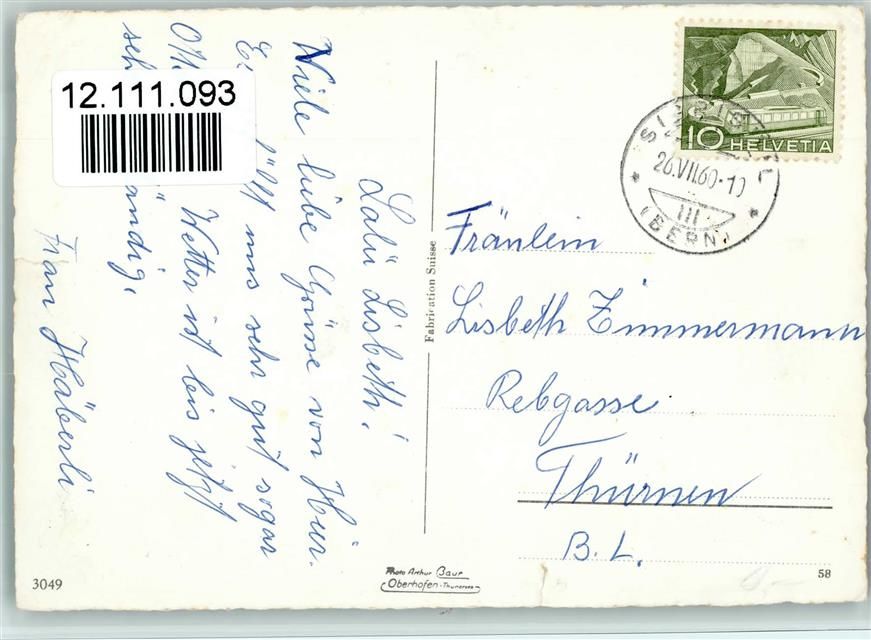 12.111.093
Lalü Lisbeth!
Viele liebe Grüsse von Hür.
uns sehr gut sogar
Wetter ist bis jetzt
Frau Häberli
10 HELVETIA
26.VII.60-10
III
(BERN)
Fräulein
Lisbeth Zimmermann
Rebgasse
Thürnen
B.L.
Fabrication Suisse
3049
Photo Arthur Baur
Oberhofen-Thunersee
58